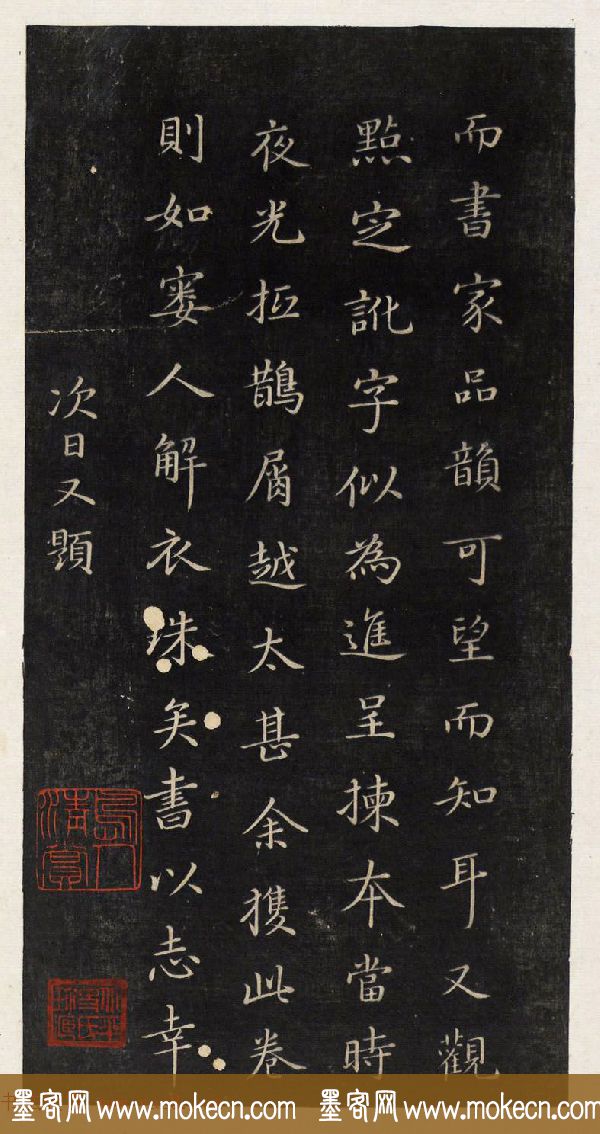 而書家品韻可望而知耳又觀
點定訛字似為進呈揀本當時
夜光抵鵲屑越太甚余獲此卷
則如窶人解衣珠矣書以志幸
次日又題
墨客网 www.mokecn.com 墨客网 www.mokecn.com 墨客网 www.mokecn.com